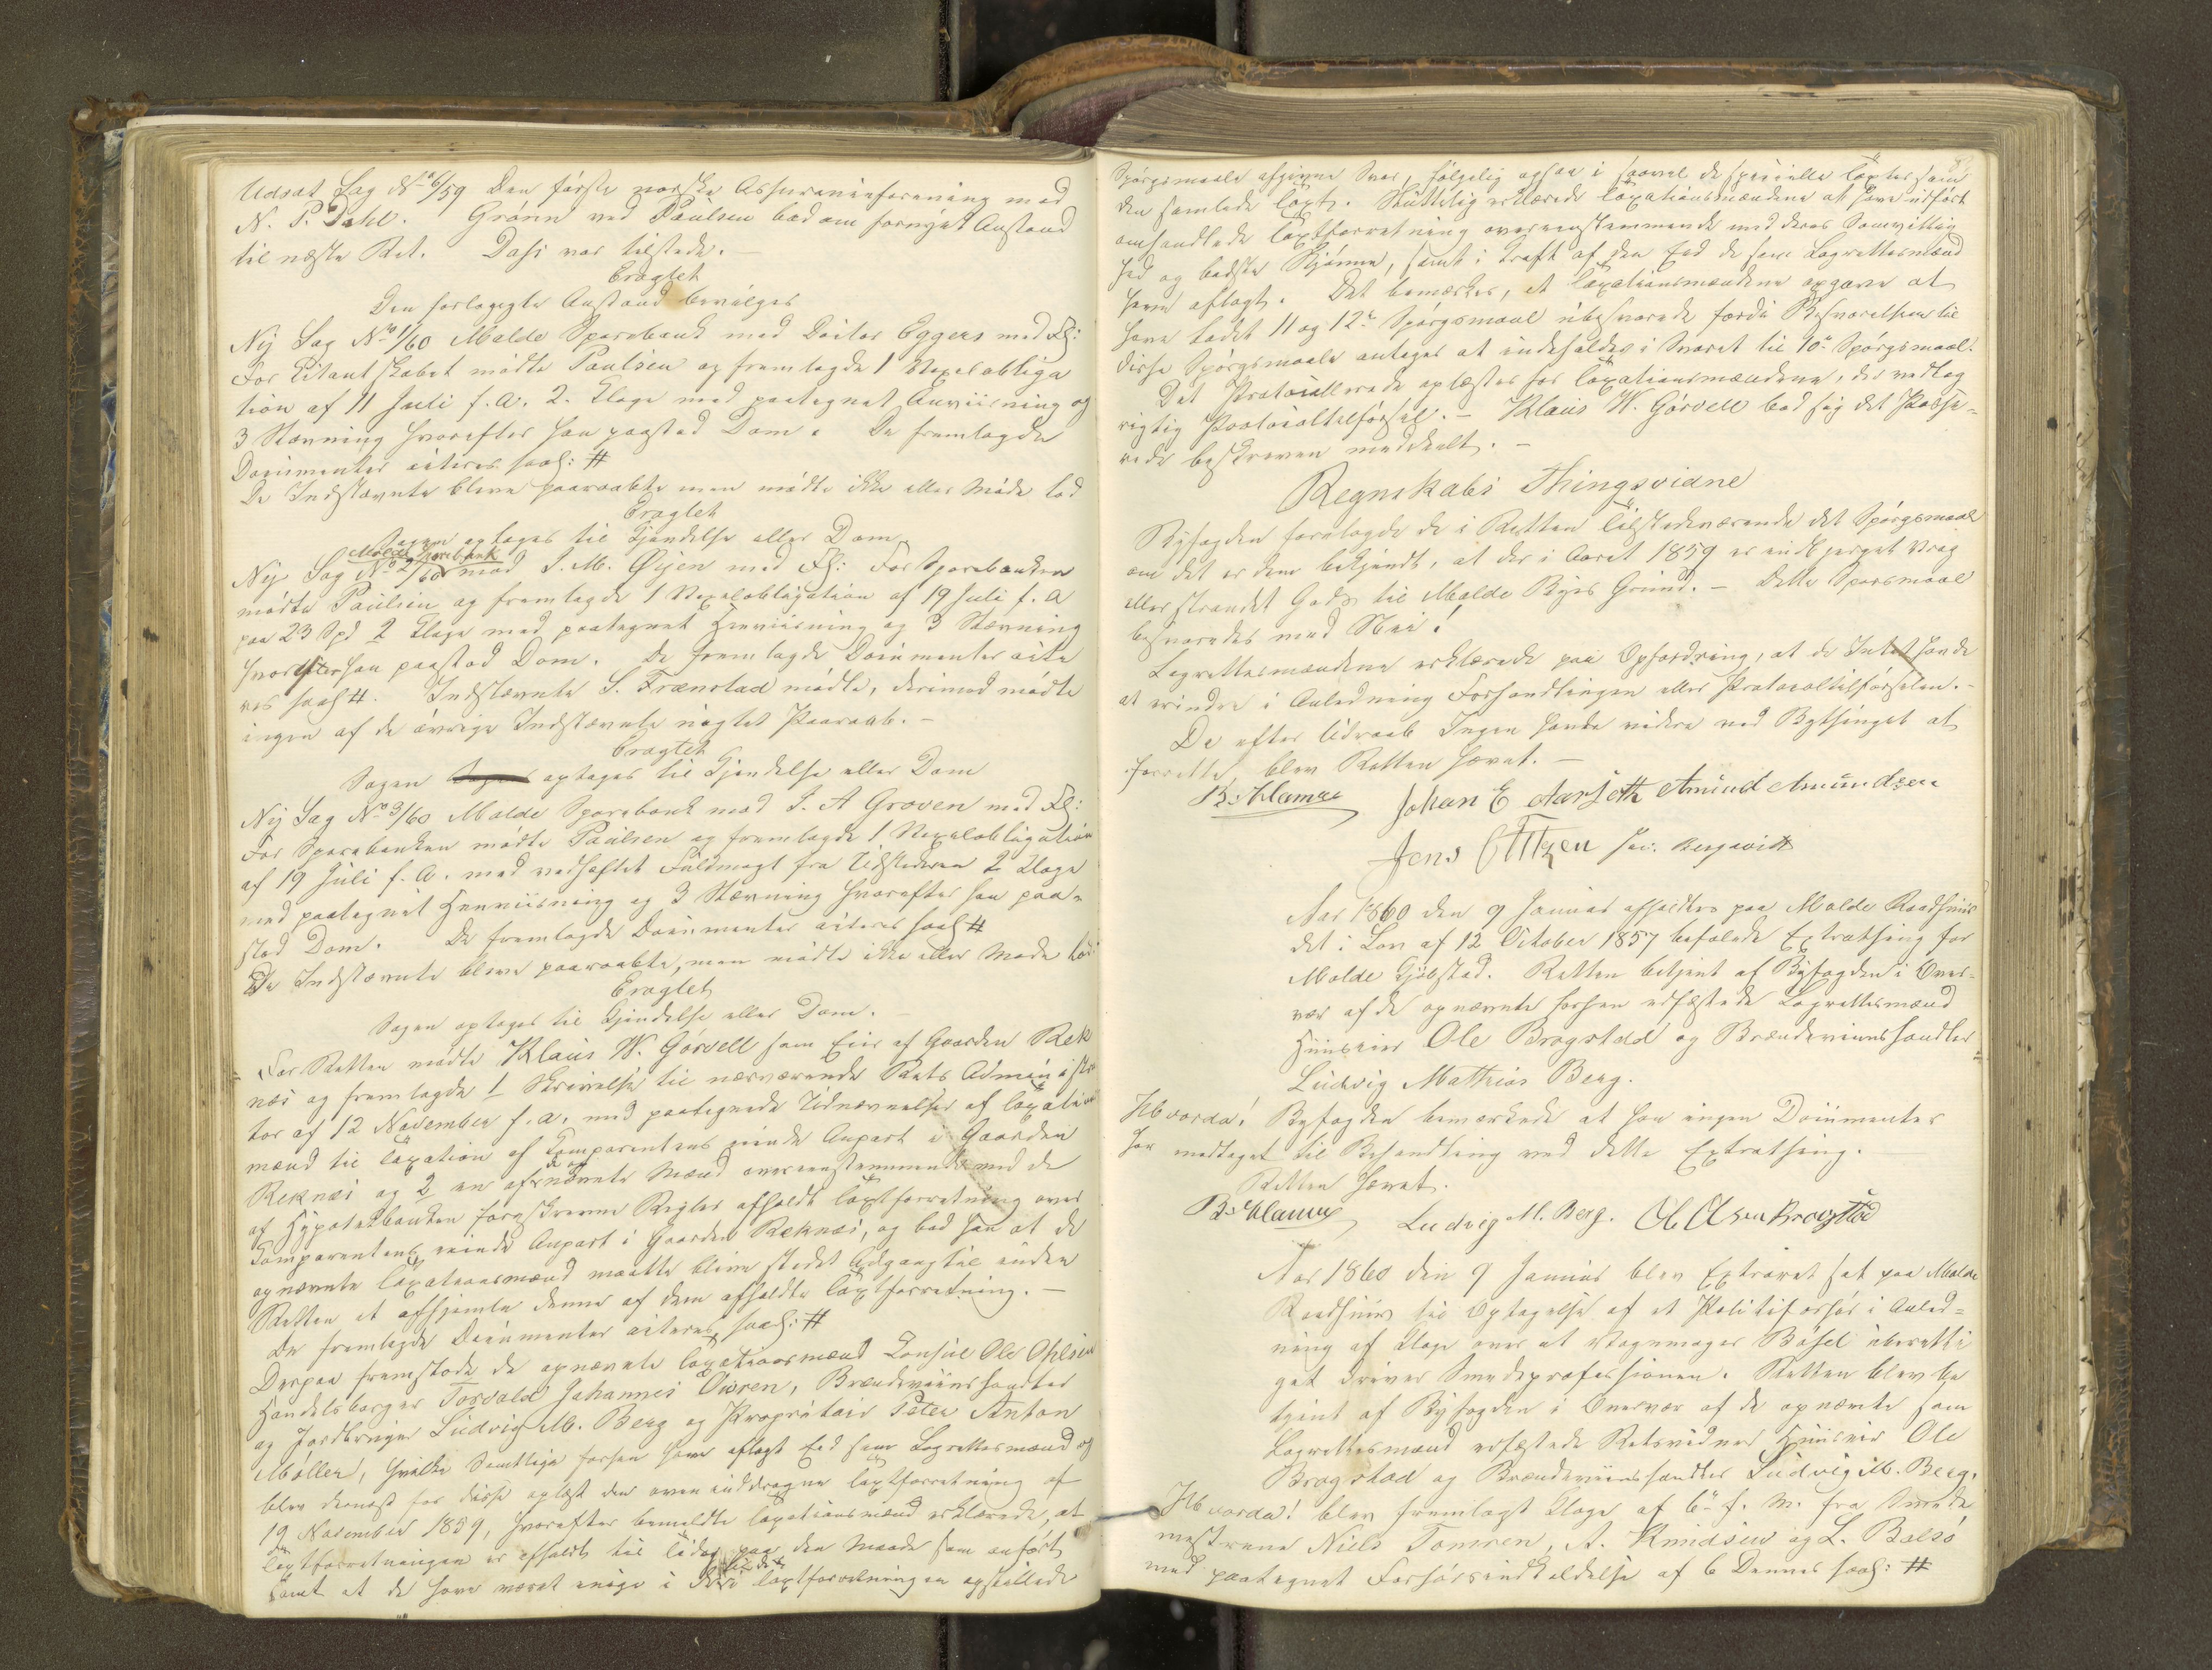 Udsat Sag No 6/59 Den første norske Assuranceforening mod
N. P. Dahl. Grønn ved Paulsen bad om fornyet Anstand
til næste Ret. Dahl var tilstede. —
Eragtet
Den forlangte Anstand bevilges
Ny Sag No 1/60 Molde Sparebank mod Doctor Eggers med Fl:
For Citantskabet mødte Paulsen og fremlagde 1 Vexelobliga
tion af 11 Juli f. A. 2. Klage med paategnet Anviisning og
3 Stævning hvorefter han paastod Dom. De fremlagde
Documenter acteres saal: #
De Indstævnte bleve paaraabte men mødte ikke eller Møde lod
Eragtet
Sagen optages til Kjendelse eller Dom.
Molde Sparebank
Ny Sag No 2/60 mod J. M. Øijen med Fl: For Sparebanken
mødte Paulsen og fremlagde 1 Vexelobligation af 19 Juli f. A
paa 23 Spd 2 Klage med paategnet Henviisning og 3 Stævning
hvorefter han paastod Dom. De fremlagde Documenter acte
res saal #. Indstævnte S. Frænstad mødte, derimod mødte
ingen af de øvrige Indstævnte uagtet Paaraab. —
Eragtet
Sagen optages til Kjendelse eller Dom
Ny Sag No 3/60 Molde Sparebank mod J. A Groven med Fl:
For Sparebanken mødte Paulsen og fremlagde 1 Vexelobligation
af 19 Juli f. A. med vedhæftet Fuldmagt fra Udstederen 2 Klage
med paategnet Henviisning og 3 Stævning hvorefter han paa-
stod Dom. De fremlagde Documenter acteres saal #
De Indstævnte bleve paaraabte, men mødte ikke eller Møde lod
Eragtet
Sagen optages til Kjendelse eller Dom.
For Retten mødte Klaus W. Görvell som Eier af Gaarden Rek
næs og fremlagde 1 Skrivelse til nærværende Rets Administra
tor af 12 November f. A. med paategnede Udnævnelse af Taxations
mænd til Taxation af Komparentens eiende Anpart i Gaarden
Reknæs og 2 en af de opnævnte Mænd overeenstemmende med de
af Hypothekbanken foreskrevne Regler afholdt Taxtforretning over
Komparentens eiende Anpart i Gaarden Reknæs, og bad han at de
opnævnte Taxationsmænd maatte blive stedet Adgang til inden
Retten at afhjemle denne af dem afholdte Taxtforretning. —
De fremlagde Documenter acteres saal: #
Derpaa fremstode de opnævnte Taxationsmænd Consul Ole Ohlsen
Handelsborger Torvald Johannes Owren, Brændeviinshandler
og Jordbruger Ludvig M. Berg og Proprietair Peter Anton
Møller, hvilke Samtlige forhen have aflagt Eed som Lagrettesmænd og
blev dernæst for disse oplæst den oven inddragne Taxtforretning af
19 November 1859, hvorefter bemeldte Taxationsmænd erklærede, at
Taxtforretningen er afholdt til Tiden paa den Maade som anført
samt at de have været enige i de i Taxtforretningen opstillede
Spørgsmaale afgivne Svar, følgelig ogsaa i saavel de specielle Taxter som
den samlede Taxt. Sluttelig erklærede Taxationsmændene at have udført
omhandlede Taxtforretning overeenstemmende med deres Samvittig
hed og bedste Skjønnende, samt i Kraft af den Eed de som Lagrettesmænd
have aflagt. Det bemærkes, at Taxationsmændene opgave at
have ladet 11 og 12te Spørgsmaal ubesvarede fordi Besvarelsen til
disse Spørgsmaale antages at indeholdes i Svaret til 10de Spørgsmaal.
Det Protocollerede oplæstes for Taxationsmændene, der vedtog
rigtig Protocoltilførsel. — Klaus W. Görvell bad sig det Passe-
rede beskreven meddeelt. —
Regnskabs Thingsvidne
Byfogden forelagde de i Retten Tilstedeværende det Spørgsmaal
om det er dem bekjendt, at der i Aaret 1859 er indbjerget Vrag
eller strandet Gods til Molde Byes Grund. — Dette Spørsmaal
besvaredes med Nei!
Lagrettesmændene erklærede paa Opfordring, at de Intet havde
at erindre i Anledning Forhandlingen eller Protocoltilførselen. —
Da efter Udraab Ingen havde videre ved Bythinget at
forrette, blev Retten hævet. —
B. Klamer Johan E Aarseth Amund Amundsen
Jens Ottzen
Aar 1860 den 9 Januar afholdtes paa Molde Raadhuus
det i Lov af 12 October 1857 befalede Extrathing for
Molde Kjøbstad. Retten betjent af Byfogden i Over-
vær af de opnævnte forhen edfæstede Lagrettesmænd
Huuseier Ole Brogstad og Brændeviinshandler
Ludvig Mathias Berg.
Hvorda! Byfogden bemærkede at han ingen Documenter
har modtaget til Behandling ved dette Extrathing.
Retten hævet.
B. Klamer Ludvig M. Berg. Ole Olsen Brogstad
Aar 1860 den 9 Januar blev Extraret sat paa Molde
Raadhuus til Optagelse af et Politiforhør i Anled-
ning af Klage over at Vognmager Bøsel uberetti
get driver Smedeprofessionen. Retten blev be
tjent af Byfogden i Overvær af de opnævnte som
Lagrettesmænd edfæstede Retsvidner Huuseier Ole
Brogstad og Brændeviinshandler Ludvig M. Berg.
Hvorda! blev fremlagt Klage af 6te f. M. fra Smede
mestrene Niels Tomren, A. Knudsen og L. Balsø
med paategnet Forhørsindkaldelse af 6 Dennes saal: #